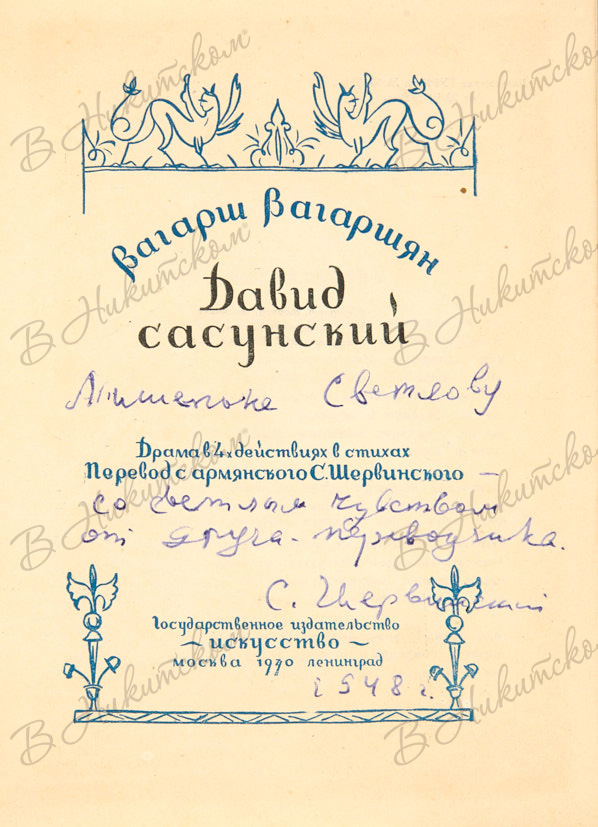 Вагарш Вагаршян
Давид
сасунский
Мишеньке Светлову
Драма в 4х действиях в стихах
Перевод с армянского С. Шервинского –
со светлым чувством
от друга-переводчика.
С. Шервинский
Государственное издательство
– искусство –
москва 1940 ленинград
1948 г.
В Никитском